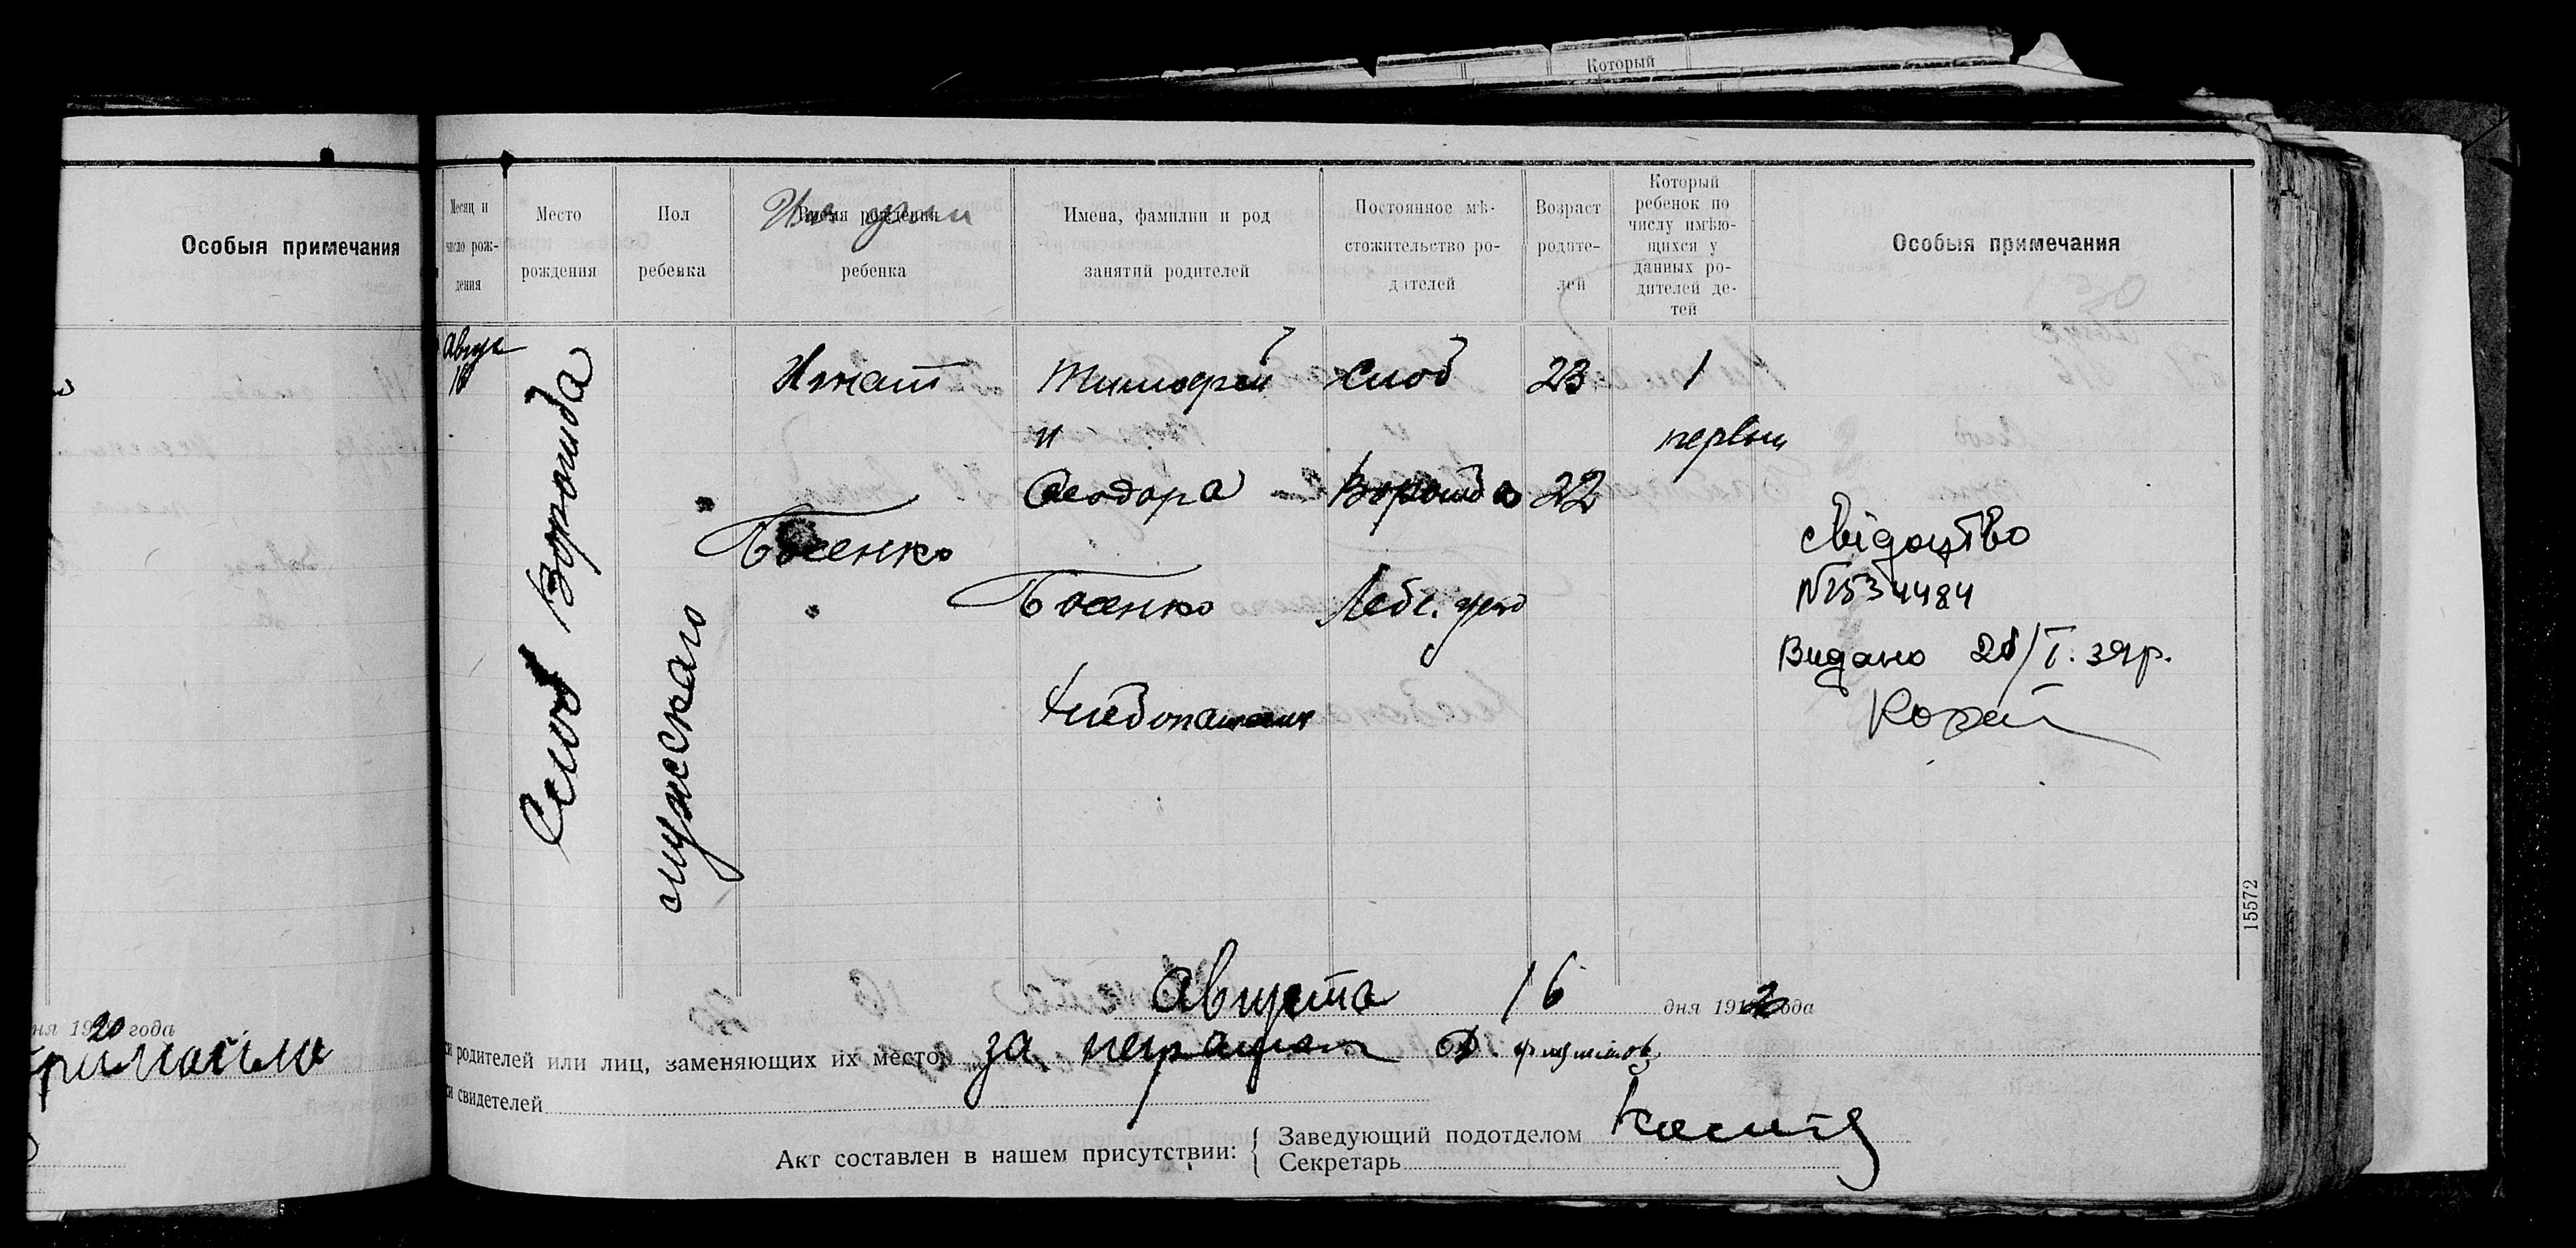 Который
Особыя примечания
Месяц и
число рож-
дения
Место
рождения
Пол
ребенка
Время рождения
ребенка
Имена, фамилии и род
занятий родителей
Постоянное мѣ-
стожительство ро-
дителей
Возраст
родите-
лей
Который
ребенок по
числу имѣю-
щихся у
данных ро-
дителей де-
тей
Особыя примечания
Август
16
Слоб Ворожба
мужского
Игнат
Босенко
Тимофей
и
Феодора
Босенко
Хлебопашцы
Слоб
Ворожба
Лебе. уезд
23
22
1
первый
свідоцтво
№534484
Видано 28/I. 39р.
15572
ня 1920 года
Августа 16 дня 19 года
и родителей или лиц, заменяющих их место за неграмот
и свидетелей
Акт составлен в нашем присутствии:
Заведующий подотделом
Секретарь